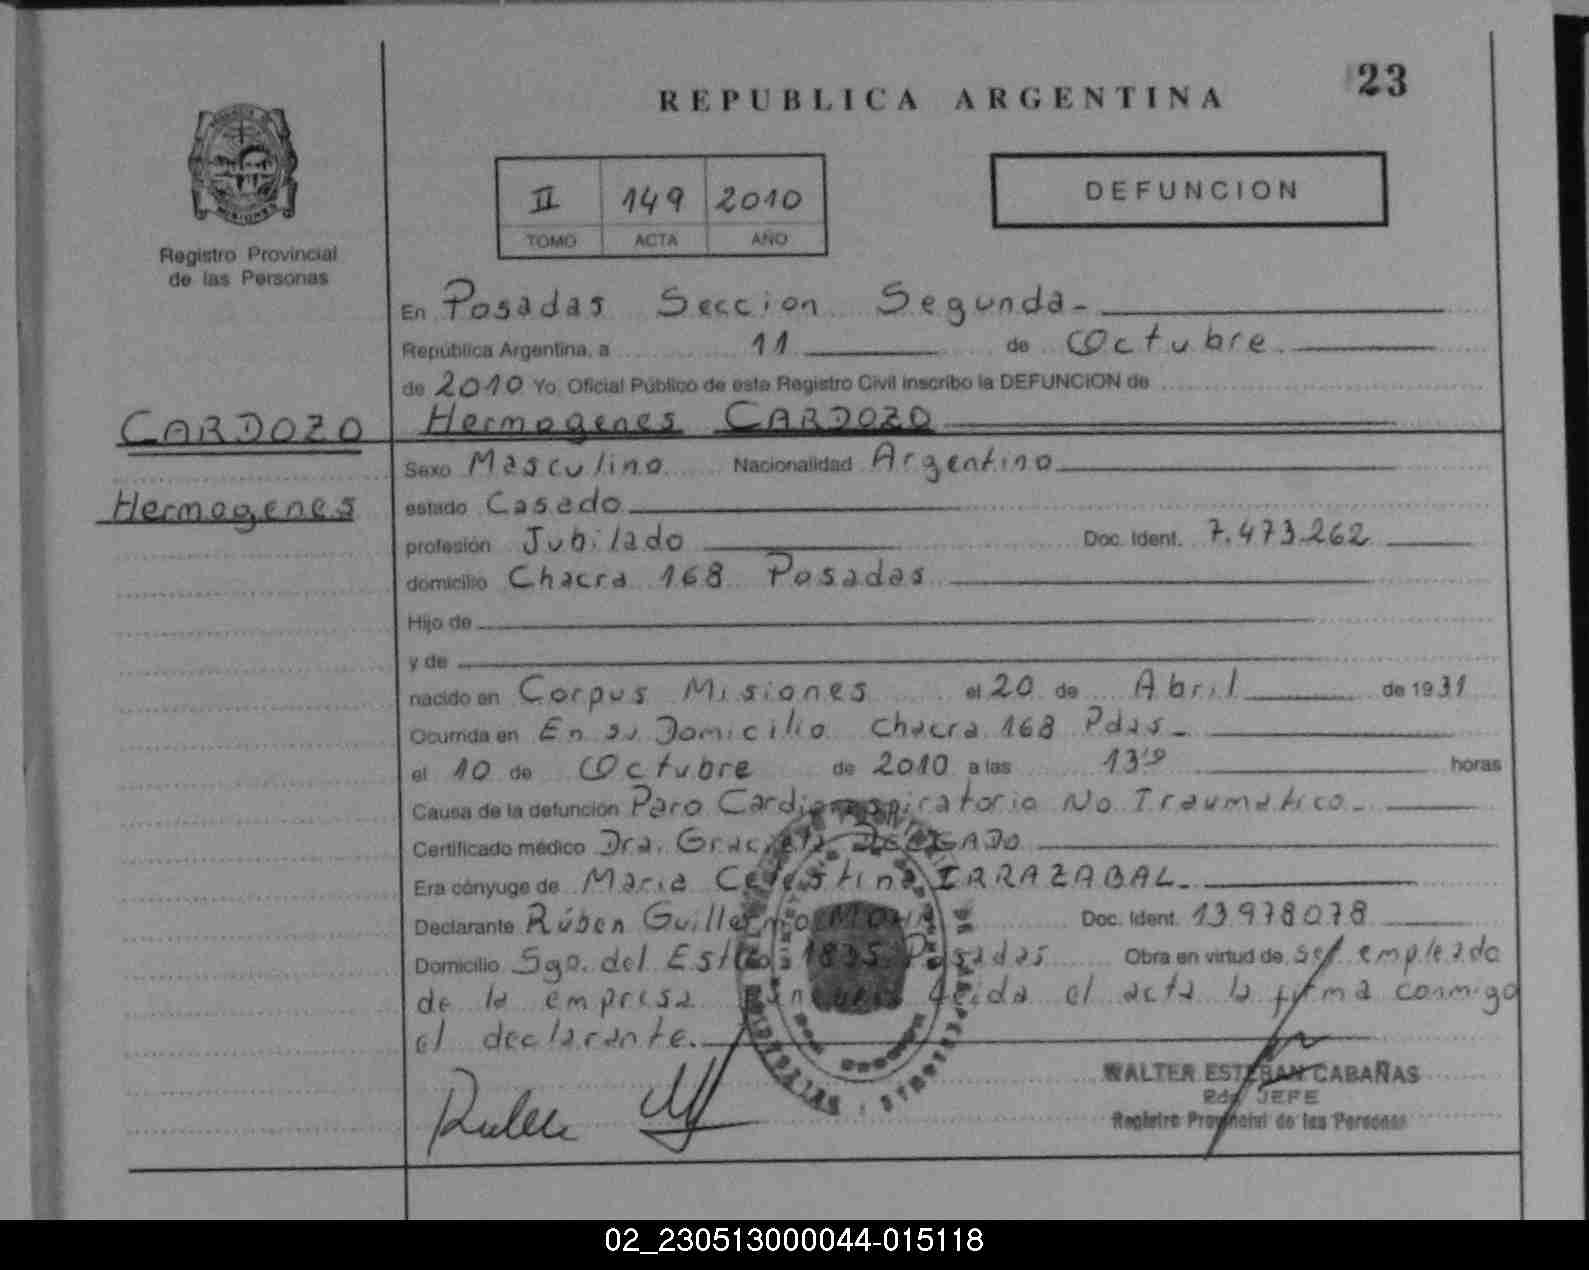 23
REPUBLICA ARGENTINA
II 149 2010
TOMO ACTA AÑO
DEFUNCION
MISIONES
Registro Provincial
de las Personas
En Posadas Seccion Segunda-
República Argentina, a 11 de Octubre
de 2010 Yo, Oficial Público de este Registro Civil inscribo la DEFUNCION de
CARDOZO
Hermogenes
Hermogenes CARDOZO
Sexo Masculino Nacionalidad Argentino
estado Casado
profesión Jubilado Doc. Ident. 7.473.262
domicilio Chacra 168 Posadas
Hijo de
y de
nacido en Corpus Misiones el 20 de Abril de 1931
Ocurrida en En su Domicilio Chacra 168 Pdas-
el 10 de Octubre de 2010 a las horas
Causa de la defunción Paro Cardiorespiratorio No Traumatico-
Certificado médico Dra. Graciela DELGADO
Era cónyuge de Maria Celestina IRRAZABAL-
Declarante Rúben Guillermo Doc. Ident. 13978078
Domicilio Sgo. del Estero 1835 Posadas Obra en virtud de ser empleado
de la empresa leida el acta la firma conmigo
el declarante.
WALTER ESTEBAN CABAÑAS
JEFE
Registro Provincial de las Personas
02_230513000044-015118